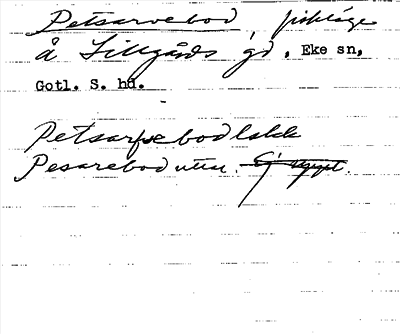 Petsarvebod, fiskläge
å Lillgårds gd. Eke sn,
Gotl. S. hd.
Petsarfvebod
Pesarebod uttal.